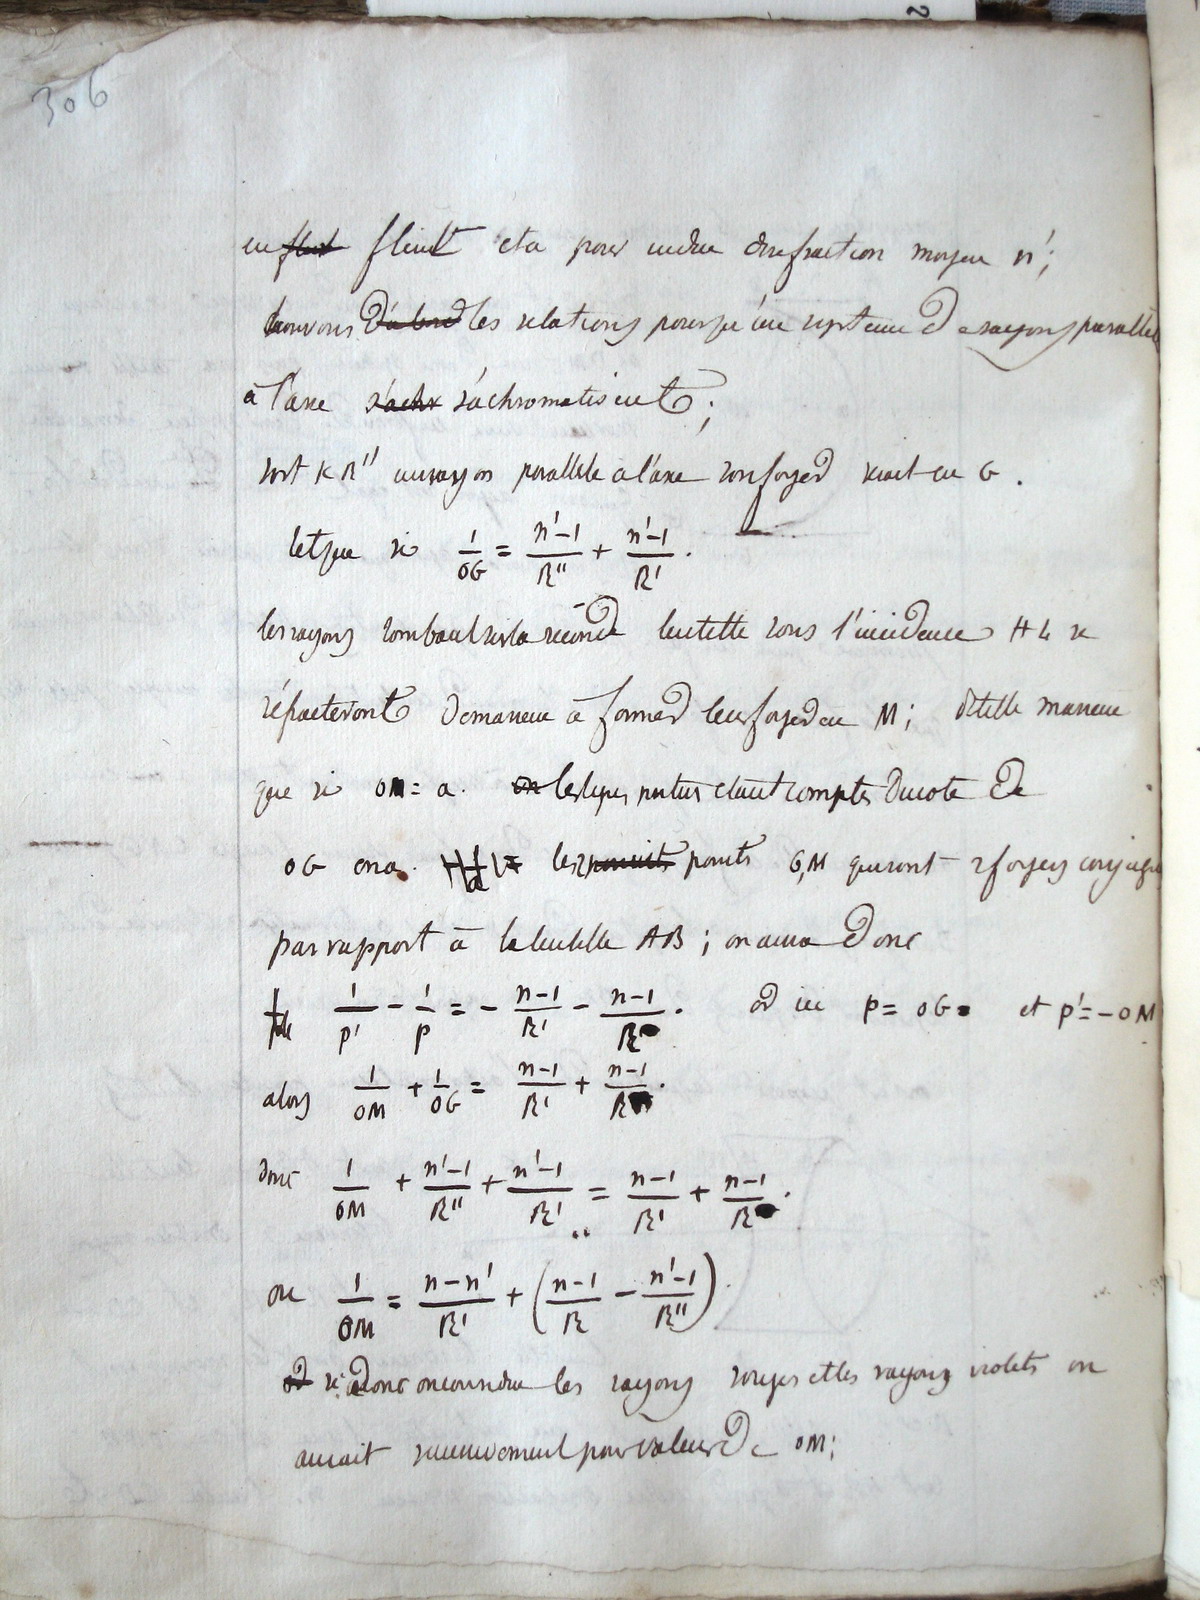 306
en flint et a pour indice de refraction moyen n';
trouvons d'abord les relations pour qu'un systeme de rayons parallèles
à l'axe s'achr s'achromatisent;
soit KR'' un rayon parallele a l'axe son foyer serait en G.
tel que si 1/OG = n'-1/R'' + n'-1/R'.
les rayons tombant sur la seconde lentille sous l'incidence HL se
réfracteront de maniere à former leur foyer en M; de telle maniere
que si OM = a. les partis etant comptés du coté de
OG on a les points points G, M qui sont 2 foyers conjugués
par rapport à la lentille AB; on aura donc
1/p' - 1/p = - n-1/R' - n-1/R. or ici p = OG. et p' = -OM
alors 1/OM + 1/OG = n-1/R' + n-1/R.
donc 1/OM + n'-1/R'' + n'-1/R' = n-1/R' + n-1/R.
ou 1/OM = n-n'/R' + (n-1/R - n'-1/R'').
si donc on considere les rayons rouges et les rayons violets on
aurait successivement pour valeur de OM;